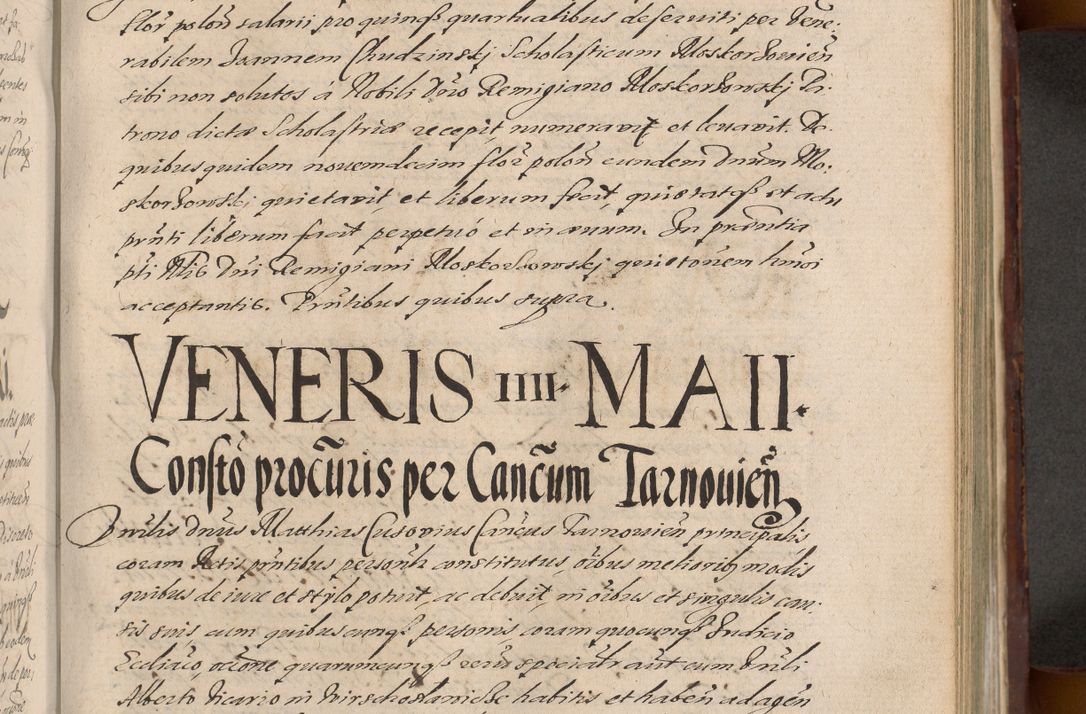 flor̃ polon̄ salarii pro quinq3 quartualibus deserviti per Vene:
rabilem Joannem Chudzinskj Scholasticum Moskorzovien̄
sibi non solutos á Nobili Dn̄o Remigiano Moskorzowskj Pa-
trono dictæ Scholastriæ recepit, numeravit et levavit. De
quibusquidem novemdecim flor̃ polon̄ eundem Dnūm Mo:
skorzowskj quietavit, et liberum fecit, quietatq3 et actu
prn̄ti liberum facit perpetuó et in ævum. In præn̄tia
pti Nlis Dn̄i Remigiani Moskorzowskj quietōnem hmōi
acceptantis. Prn̄tibus quibus supra.
VENERIS IIII. MAII.
Constò procūris per Cancūm Tarnovien̄
Vn̄rlis Dnūs Matthias Cusovius Cancūs Tarnowien̄ principalis
coram Actis prn̄tibus personlr constitutus, oībus meliorib3 modis
quibus de iure et stylo potuit, ac debuit, in oībus et singulis cau-
sis suis cum quibuscunq3 personis coram quocunq3 Judicio
Eccliāco, rōne quarumcunq3 rerū specialr aūt cum Vn̄rli
Alberto Vicario in Wirschoslawicze habitis et haben̄ ad agen̄